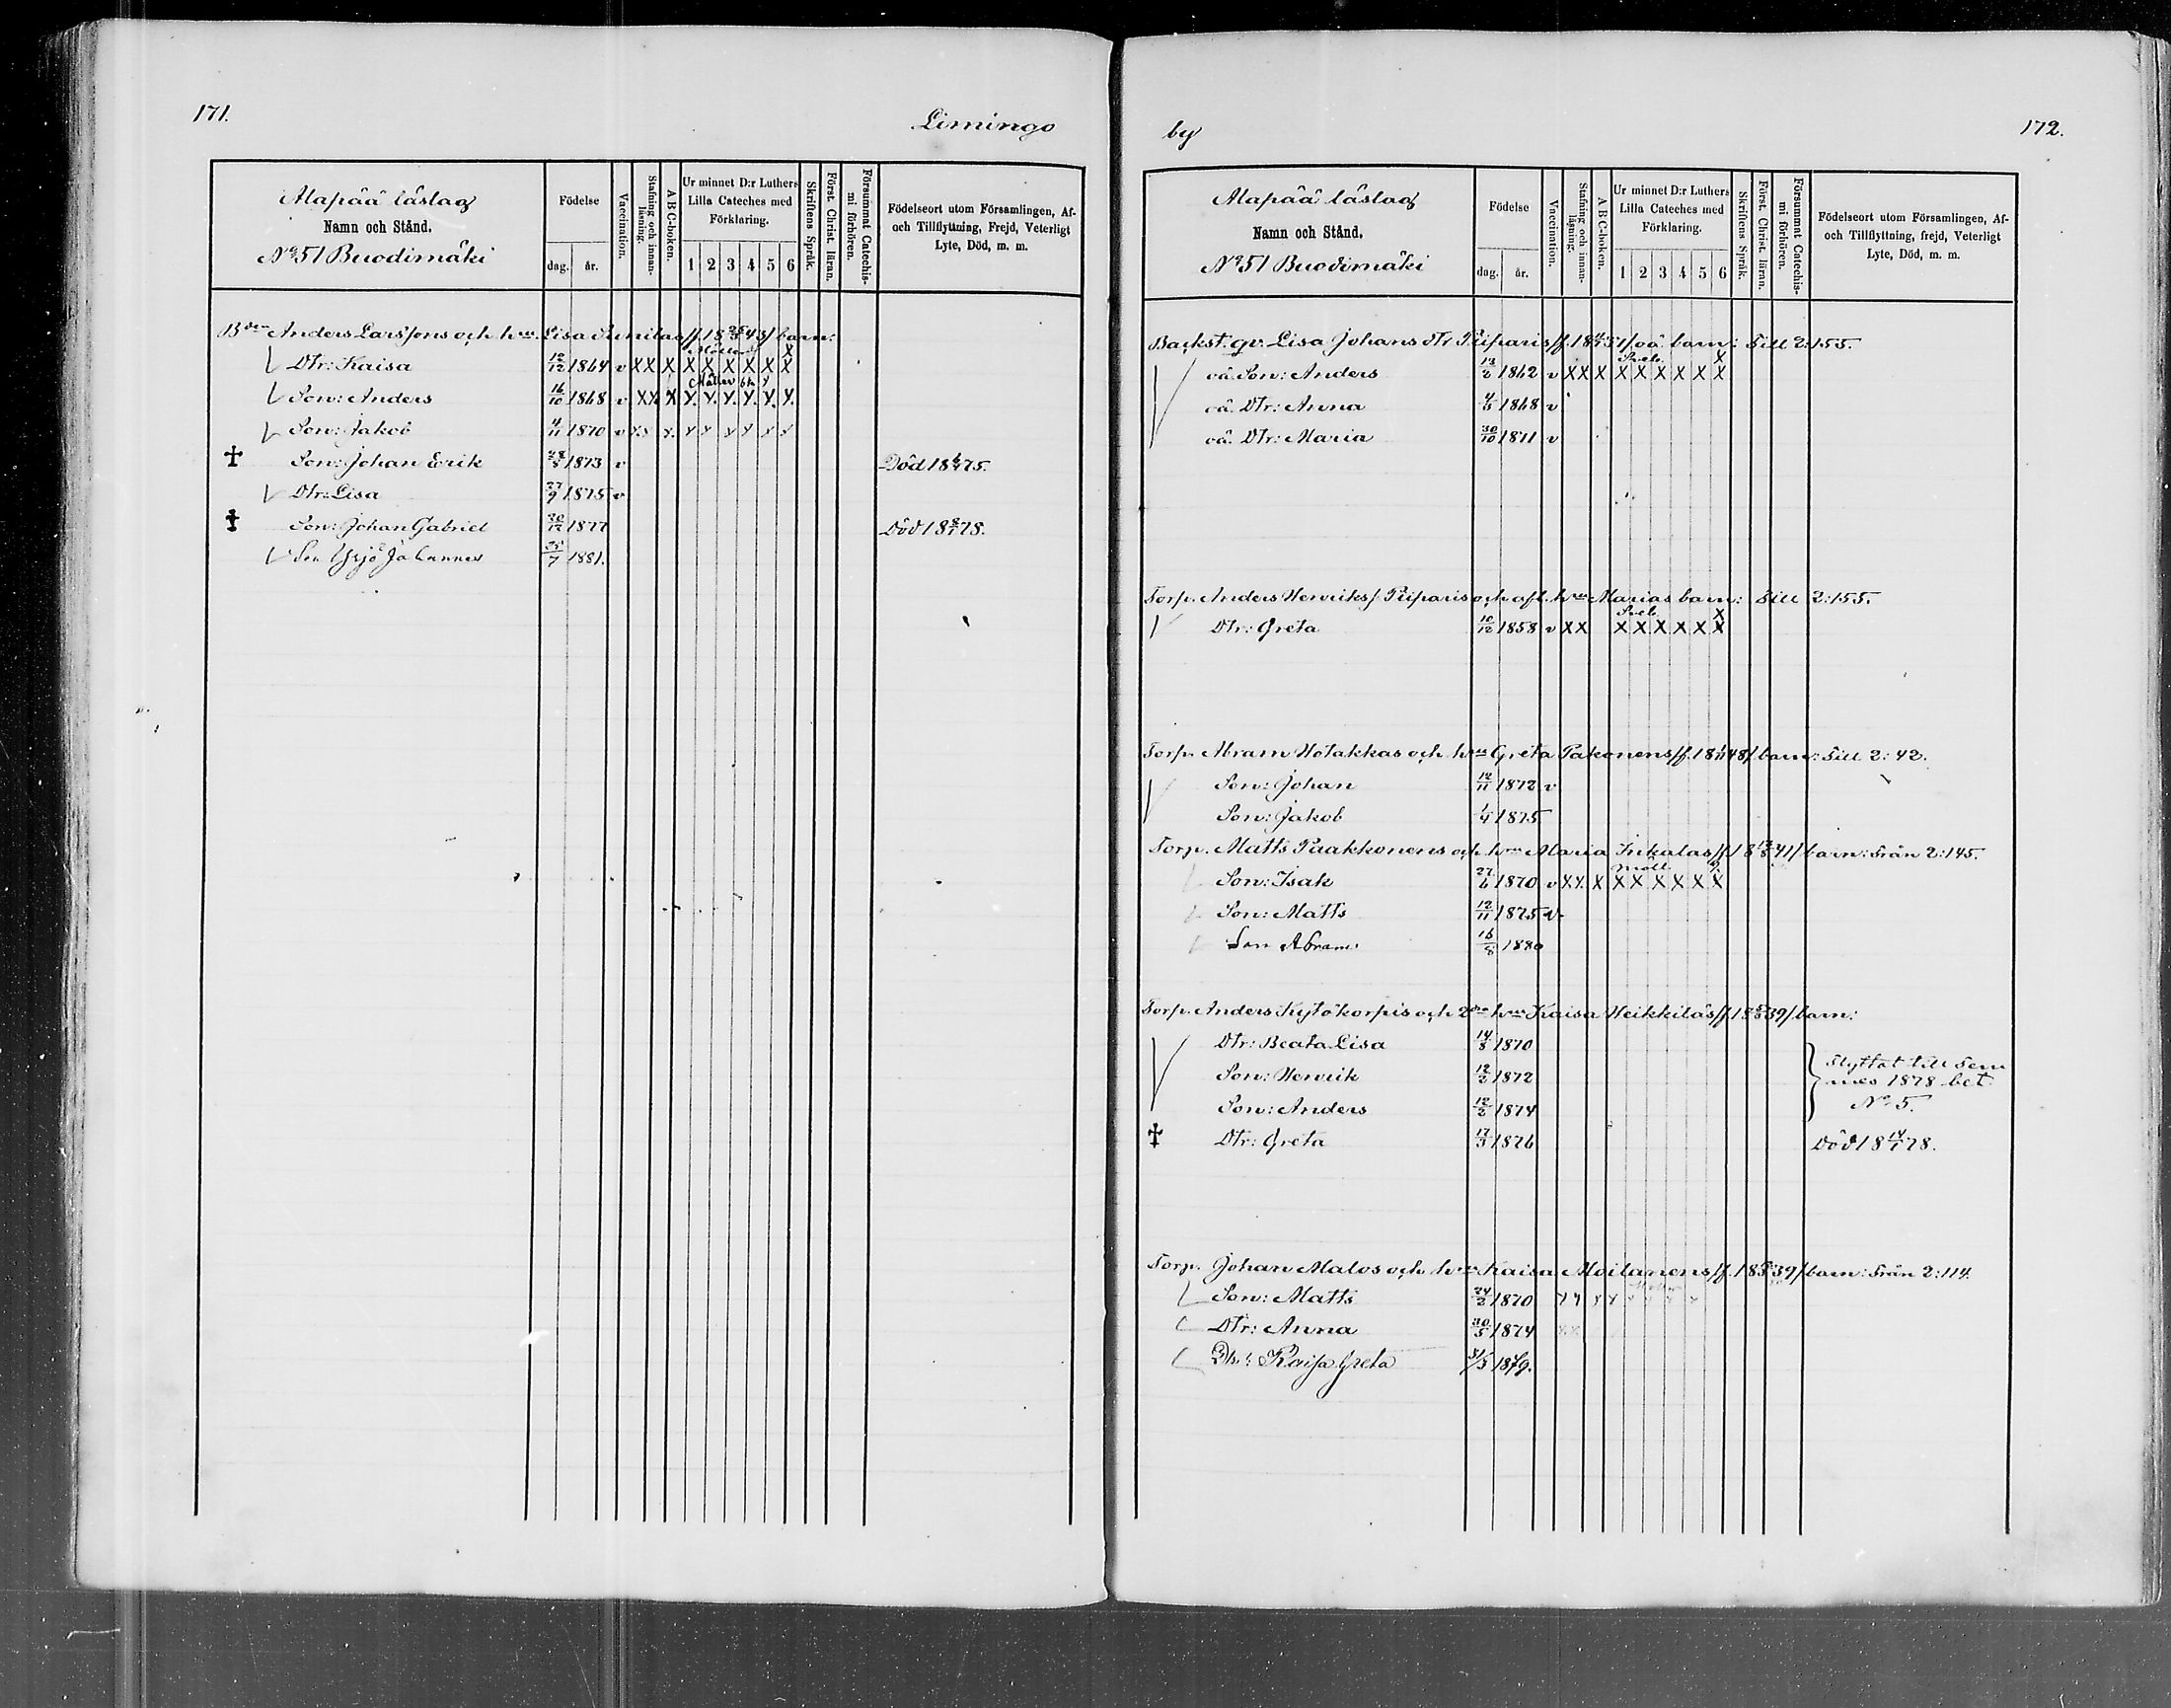 171.
Limingo
Alapää läslag
Namn och Stånd.
No 51 Buodimäki
Födelse
dag. år.
Vaccination.
Stafning och innan-läsning.
A B C-boken.
Ur minnet D:r Luthers
Lilla Cateches med
Förklaring.
1 2 3 4 5 6
Skriftens Språk.
Först. Christ. läran.
Försummat Catechis-mi förhören.
Födelseort utom Församlingen, Af-
och Tillflyttning, Frejd, Veterligt
Lyte, Död, m. m.
Bden Anders Larssons och hus. Lisa Junilas /f. 18 43/ barn:
Dtr: Kaisa 12/12 1864 v X X X X X X X X X X
Son: Anders 16/10 1868 v X X X X X X X X X
Son: Jakob 4/11 1870 v X X X X X X X X X
Son: Johan Erik 28/5 1873 v Död 18 75.
Dtr: Lisa 27/9 1875 v
Son: Johan Gabriel 20/12 1877 Död 18 78.
Son Yrjö Johannes 25/7 1881.
by
172.
Alapää läslag
Namn och Stånd.
No 51 Buodimäki
Födelse
dag. år.
Vaccination.
Stafning och innan-läsning.
A B C-boken.
Ur minnet D:r Luthers
Lilla Cateches med
Förklaring.
1 2 3 4 5 6
Skriftens Språk.
Först. Christ. läran.
Försummat Catechis-mi förhören.
Födelseort utom Församlingen, Af-
och Tillflyttning, frejd, Veterligt
Lyte, Död, m. m.
Backst. qv. Lisa Johans dtr Piiparis /f. 18 51/ oä barn: Till 2:155.
oä. Son: Anders 13/2 1862 v X X X X X X X X X X
oä. Dtr: Anna 4/3 1868 v
oä. Dtr: Maria 30/10 1871 v
Torp. Anders Henriks/ Piiparis och afl. hus Marias barn: Till 2:155.
Dtr: Greta 10/12 1858 v X X X X X X X X X
Torp. Abram Hotakkas och hus Greta Pakonens /f. 18 48/ barn: Till 2:42.
Son: Johan 12/11 1872 v
Son: Jakob 1/4 1875
Torp. Matts Paakkonens och hus Maria Inkalas /f. 18 41/ barn: Från 2:145.
Son: Isak 27/6 1870 v X X X X X X X X X
Son: Matts 12/11 1875 v.
Son Abram 16/8 1880
Torp. Anders Kytökorpis och 2dra hus Kaisa Heikkiläs /f. 18 39/ barn:
Dtr: Beata Lisa 14/3 1870
Son: Henrik 12/2 1872
Son: Anders 12/2 1874
Flyttat till Tem
mes 1878 bet
No 5.
Dtr: Greta 17/3 1876 Död 18 14/1 78.
Torp. Johan Malos och hus Kaisa Moilanens /f. 18 39/ barn: Från 2:114.
Son: Matts 24/2 1870
Dtr: Anna 30/5 1874
Dtr: Kaisa Greta 31/5 1879.